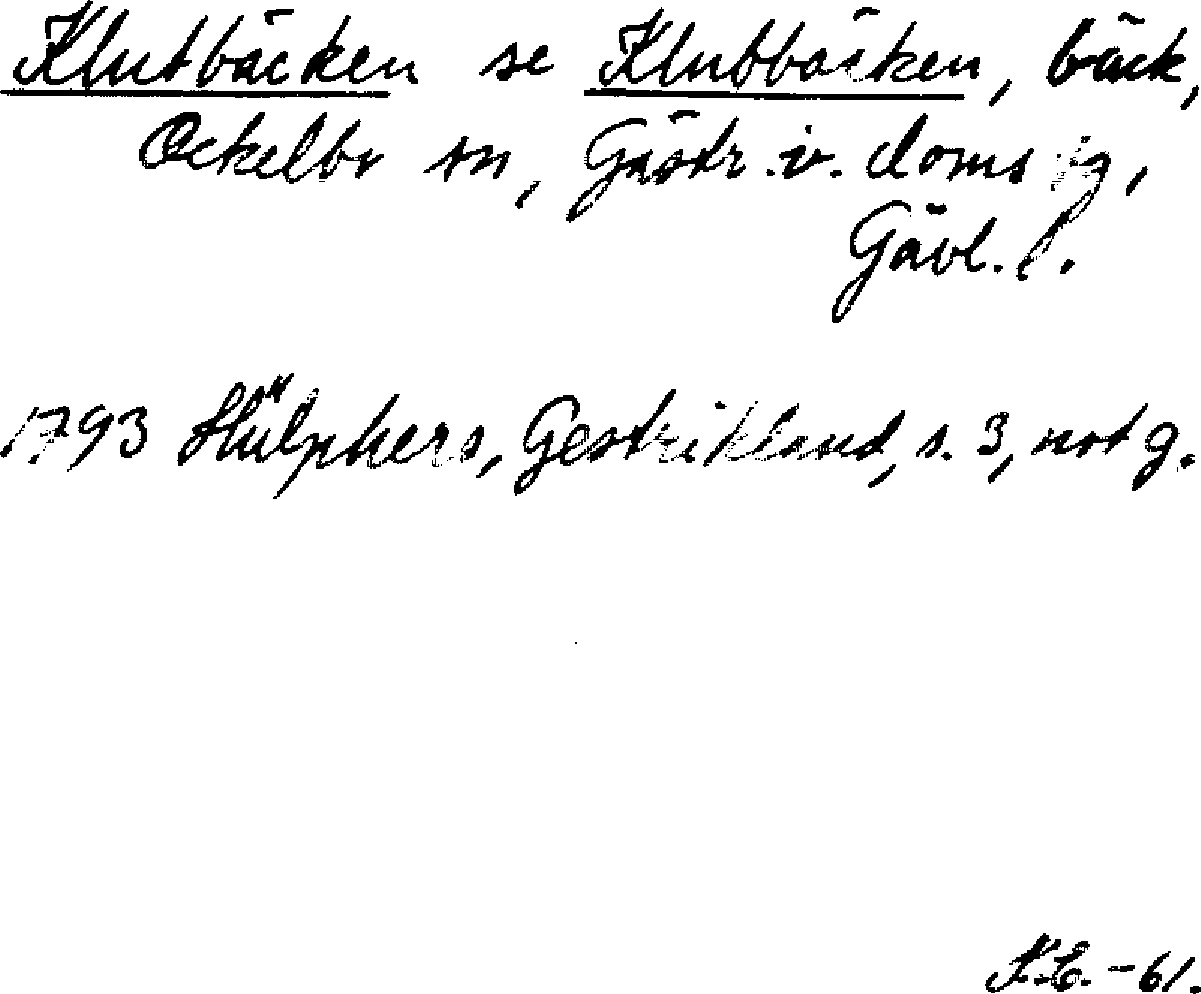 Klutbäcken se Klubbäcken, bäck,
Ockelbo sn, Gästr. v. doms jg,
Gävl. l.
1793 Hülphers, Gestrikland, s. 3, not g.
K.L. -61.